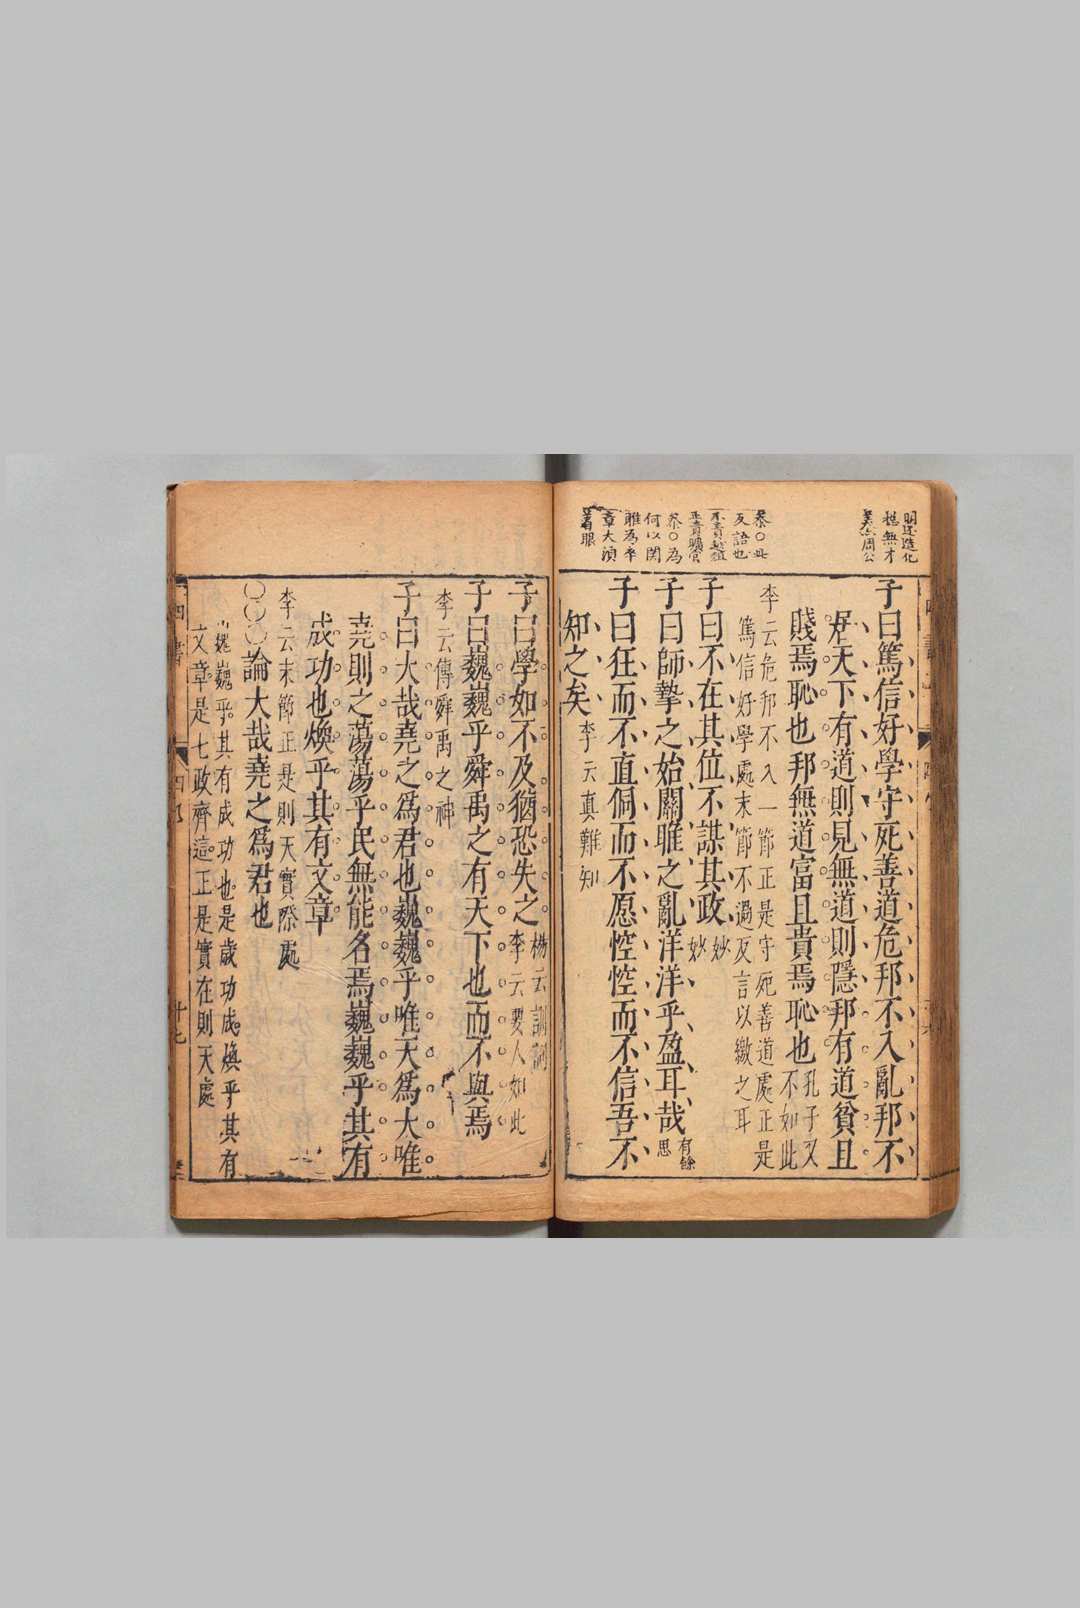 明述造化
子曰篤信好學守死善道危邦不入亂邦不
居天下有道則見無道則隱邦有道貧且
賤焉恥也邦無道富且貴焉恥也
孔子又
不如此
李云危邦不入一節正是守死善道處正是
篤信好學處末節不過反言以繳之耳
反語也
子曰不在其位不謀其政
妙
妙
何以關
雎為卒
章大須
着眼
子曰師摯之始關雎之亂洋洋乎盈耳哉
有餘
思
子曰狂而不直侗而不愿悾悾而不信吾不
知之矣
李云真難知
子曰學如不及猶恐失之
李云要人如此
子曰巍巍乎舜禹之有天下也而不與焉
李云傳舜禹之神
子曰大哉堯之為君也巍巍乎唯天為大唯
堯則之蕩蕩乎民無能名焉巍巍乎其有
成功也煥乎其有文章
李云末節正是則天實際處
○○○論大哉堯之為君也
巍巍乎其有成功也是歲功成煥乎其有
文章是七政齊這正是實在則天處
四書
十七